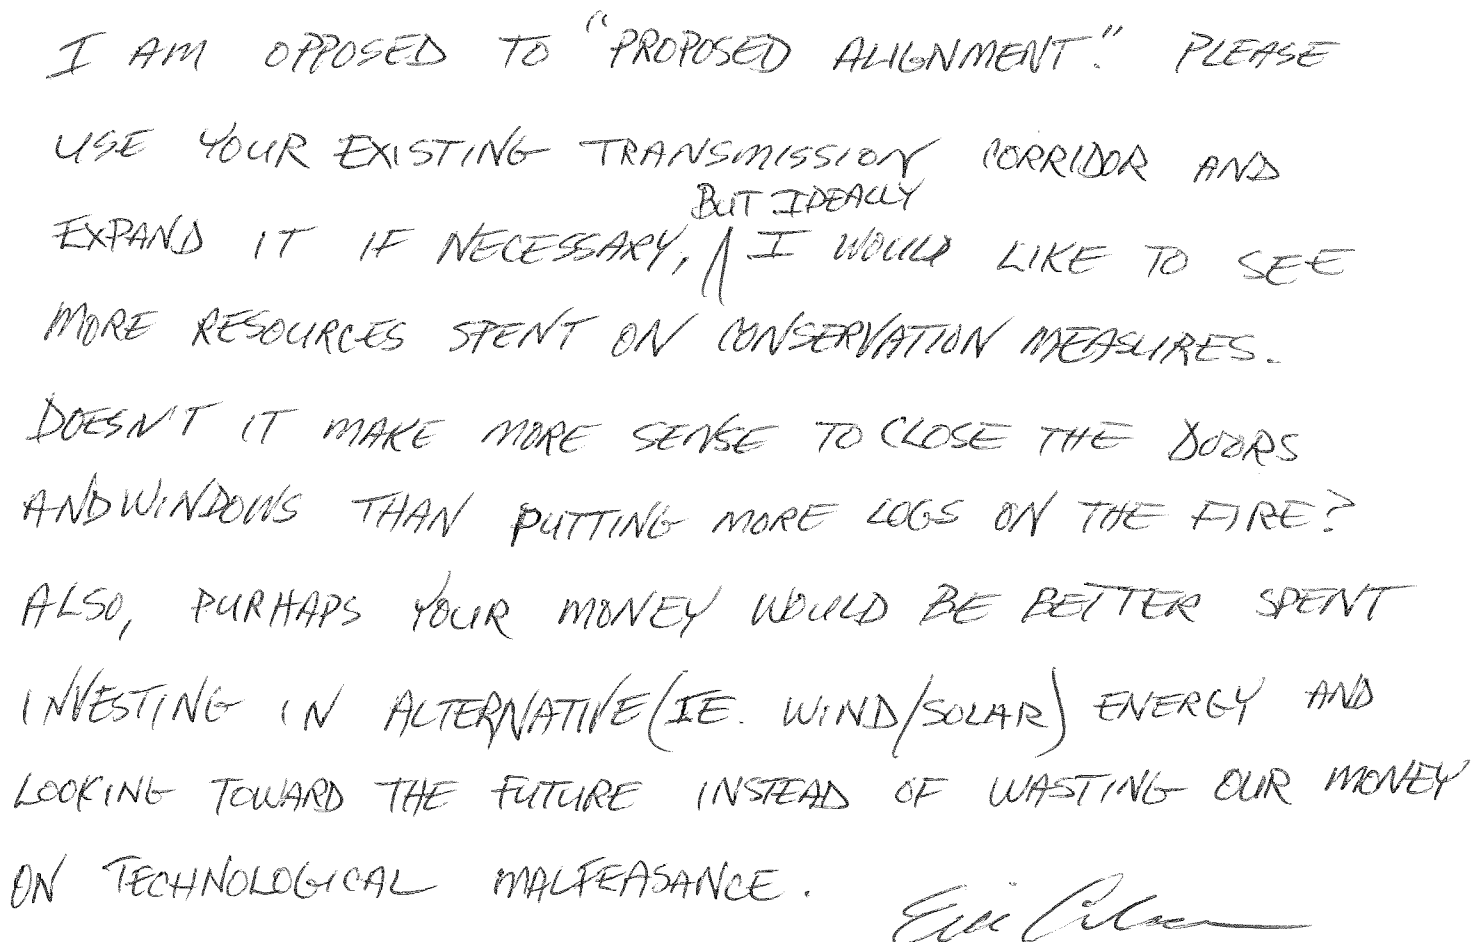 I AM OPPOSED TO "PROPOSED ALIGNMENT". PLEASE
USE YOUR EXISTING TRANSMISSION CORRIDOR AND
BUT IDEALLY
EXPAND IT IF NECESSARY, /\ I WOULD LIKE TO SEE
MORE RESOURCES SPENT ON CONSERVATION MEASURES.
DOESN'T IT MAKE MORE SENSE TO CLOSE THE DOORS
AND WINDOWS THAN PUTTING MORE LOGS ON THE FIRE?
ALSO, PURHAPS YOUR MONEY WOULD BE BETTER SPENT
INVESTING IN ALTERNATIVE (IE. WIND/SOLAR) ENERGY AND
LOOKING TOWARD THE FUTURE INSTEAD OF WASTING OUR MONEY
ON TECHNOLOGICAL MALFEASANCE.